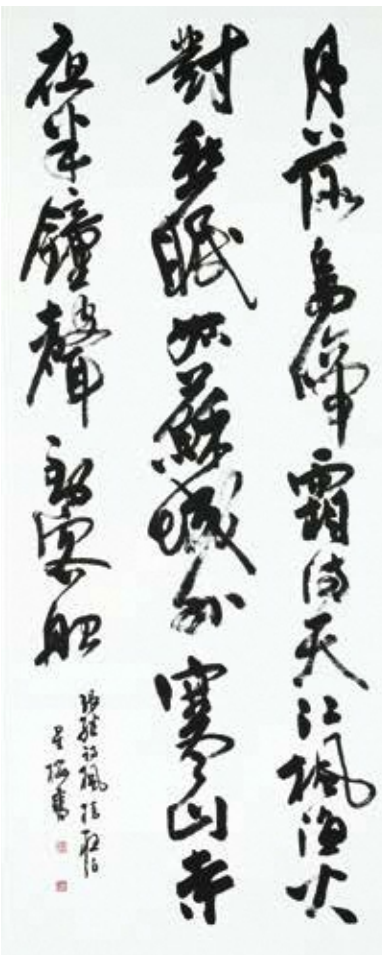 月落烏啼霜满天江楓渔火
對愁眠姑蘇城外寒山寺
夜半鐘聲到客船
張继詩楓橋夜泊
星梅書